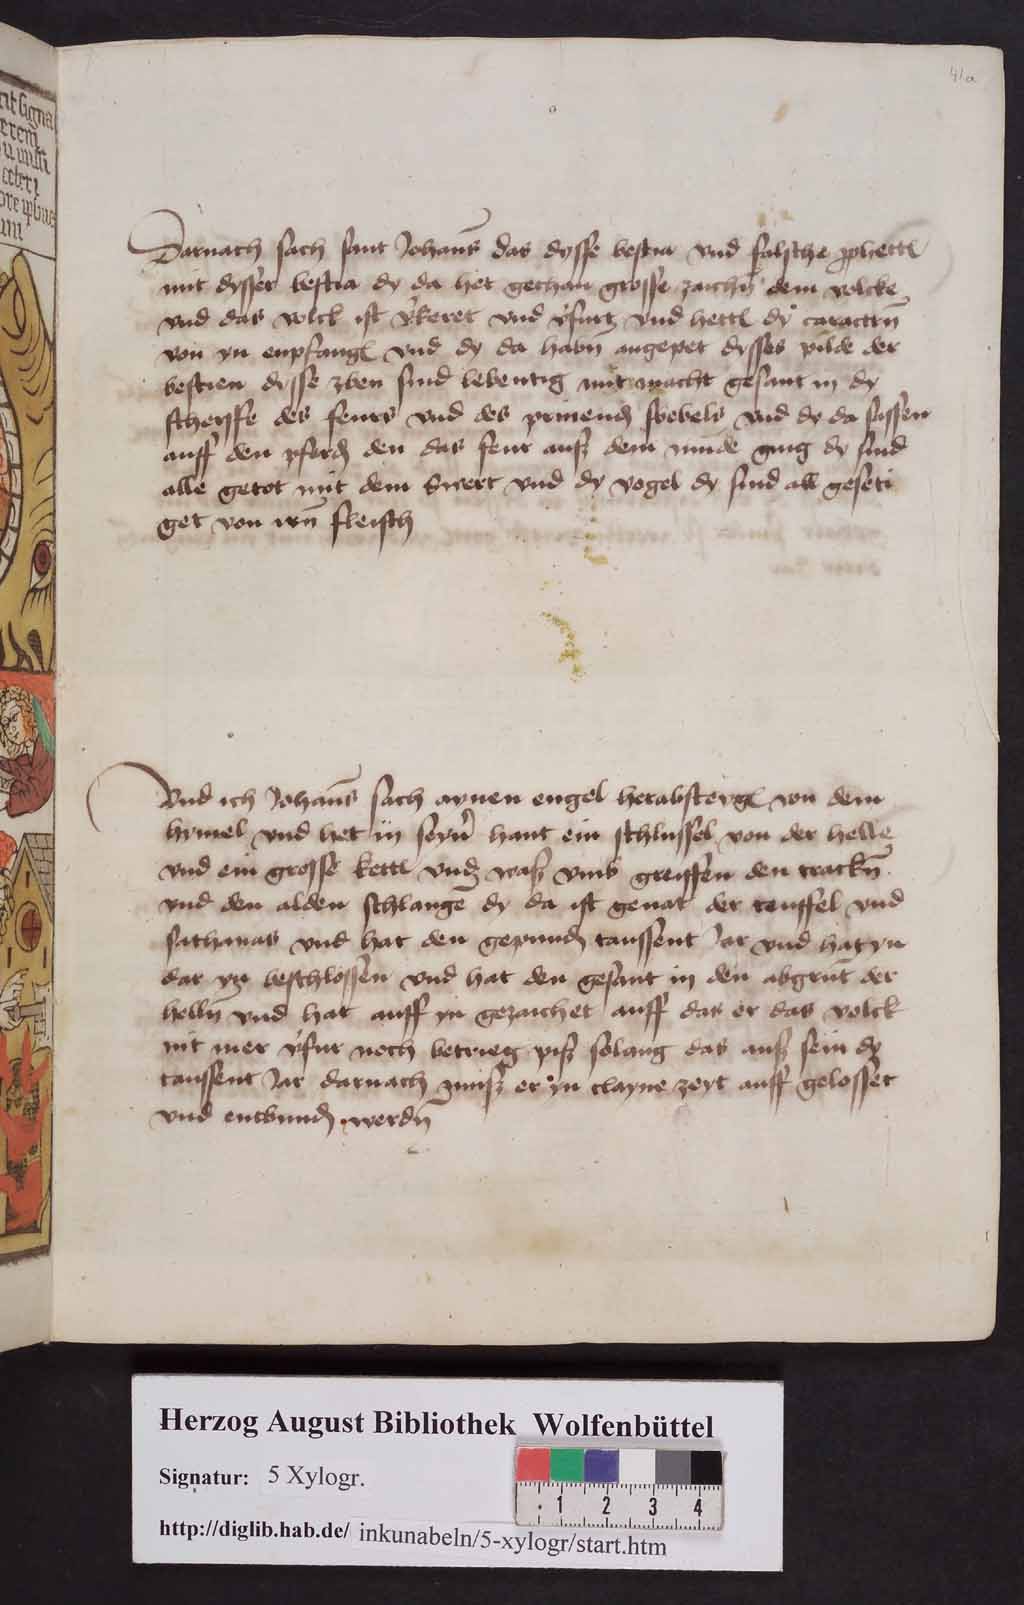 41a
Darnach sach sant Johans das dysse bestia vnd falsche ꝓphettē
mit dysser bestia dy da het gethan grosse zaichñ dem volcke
vnd das volck ist v̓keret vnd v̓furt vnd hettē dy caracterñ
von yn enpfangē vnd dy da habñ angepet dysses pilde der
bestien dysse zben sind lebentig mit macht gesant in dy
scherffe des feurs vnd des prinendē sbebels vnd dy da sassen
auff den pferdē den das feur auß dem munde ging dy sind
alle getot mit dem swert vnd dy vogel dy sind all geseti
get von irñ fleisch
Vnd ich Johans sach aynen engel herabsteygē von dem
hymel vnd het in seyn̄ hant ein schlussel von der helle
vnd ein grosse kettē vnd waß vmb greyffen den trackñ
vnd den alden schlange dy da ist genat der teuffel vnd
sathanas vnd hat den gepundē taussent Jar vnd hat yn
dar yn beschlossen vnd hat den gesant in den abgrūt der
hellñ vnd hat auff yn gezaichet auff das er das volck
nit mer v̓fur noch betrieg piß solang das auß sein dy
taussent Jar darnach muß er yn clayne zeyt auff gelosset
vnd entbundē werdñ
rit signa
Herzog August Bibliothek Wolfenbüttel
Signatur: 5 Xylogr.
1 2 3 4
http://diglib.hab.de/ inkunabeln/5-xylogr/start.htm